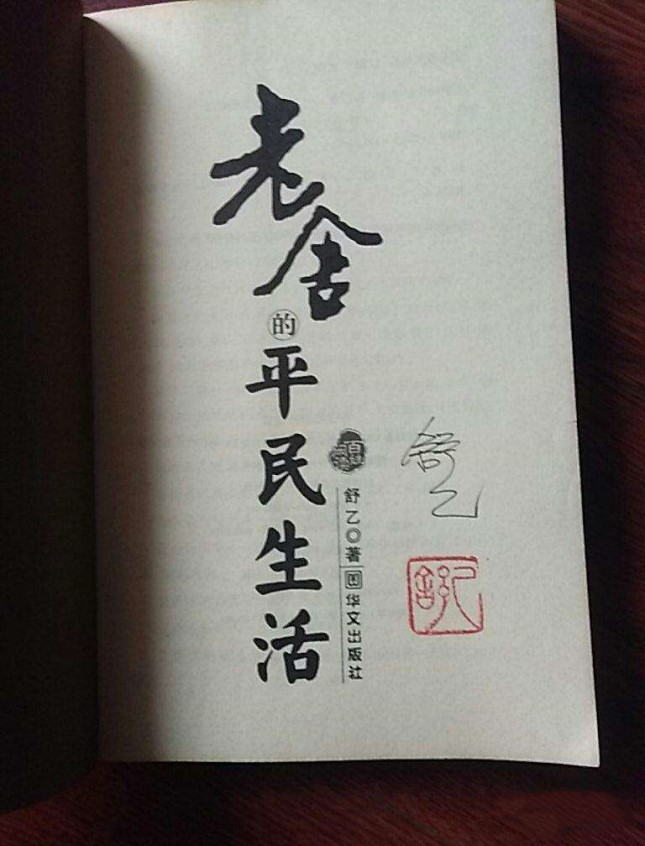 老舍
的
平民生活
舒乙◎著
华文出版社
舒乙